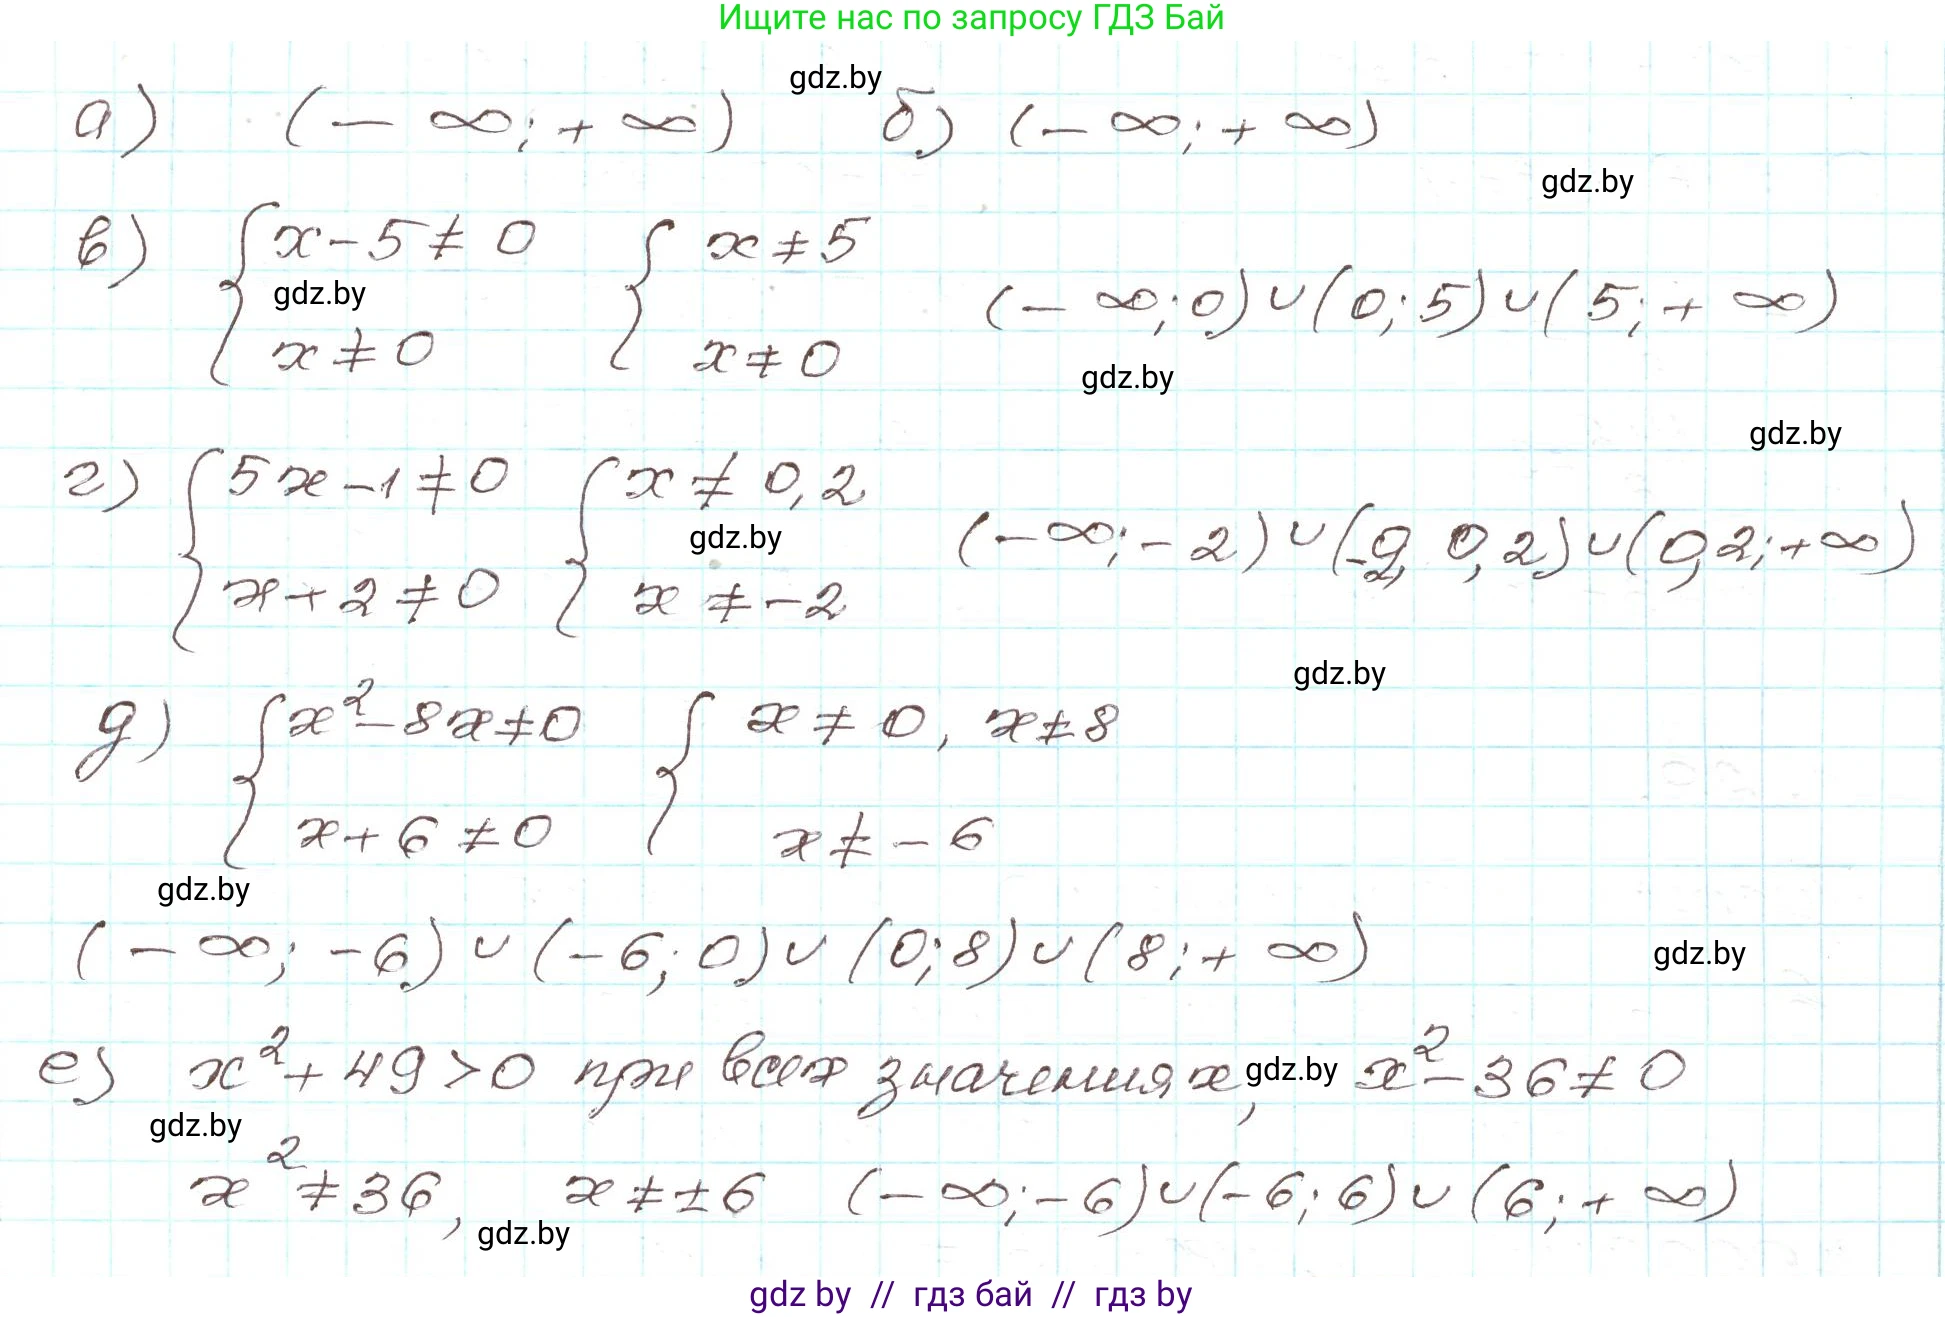 Ищите нас по запросу ГДЗ Бай
gdz.by
а) (- ∞; + ∞) б) (- ∞; + ∞)
gdz.by
в) { x - 5 ≠ 0 { x ≠ 5
gdz.by (- ∞; 0) ∪ (0; 5) ∪ (5; + ∞)
x ≠ 0 x ≠ 0
gdz.by
gdz.by
г) { 5x - 1 ≠ 0 { x ≠ 0,2
gdz.by (-∞; - 2) ∪ (-2, 0,2) ∪ (0,2; +∞)
x + 2 ≠ 0 x ≠ -2
gdz.by
д) { x² - 8x ≠ 0 { x ≠ 0, x ≠ 8
x + 6 ≠ 0 x ≠ - 6
gdz.by
(- ∞; -6) ∪ (-6; 0) ∪ (0; 8) ∪ (8; + ∞)
gdz.by
е) x² + 49 > 0 при всех значениях x, gdz.by x² - 36 ≠ 0
gdz.by
x² ≠ 36, x ≠ ± 6 (- ∞; -6) ∪ (-6; 6) ∪ (6; + ∞)
gdz.by
gdz by // гдз бай // гдз by